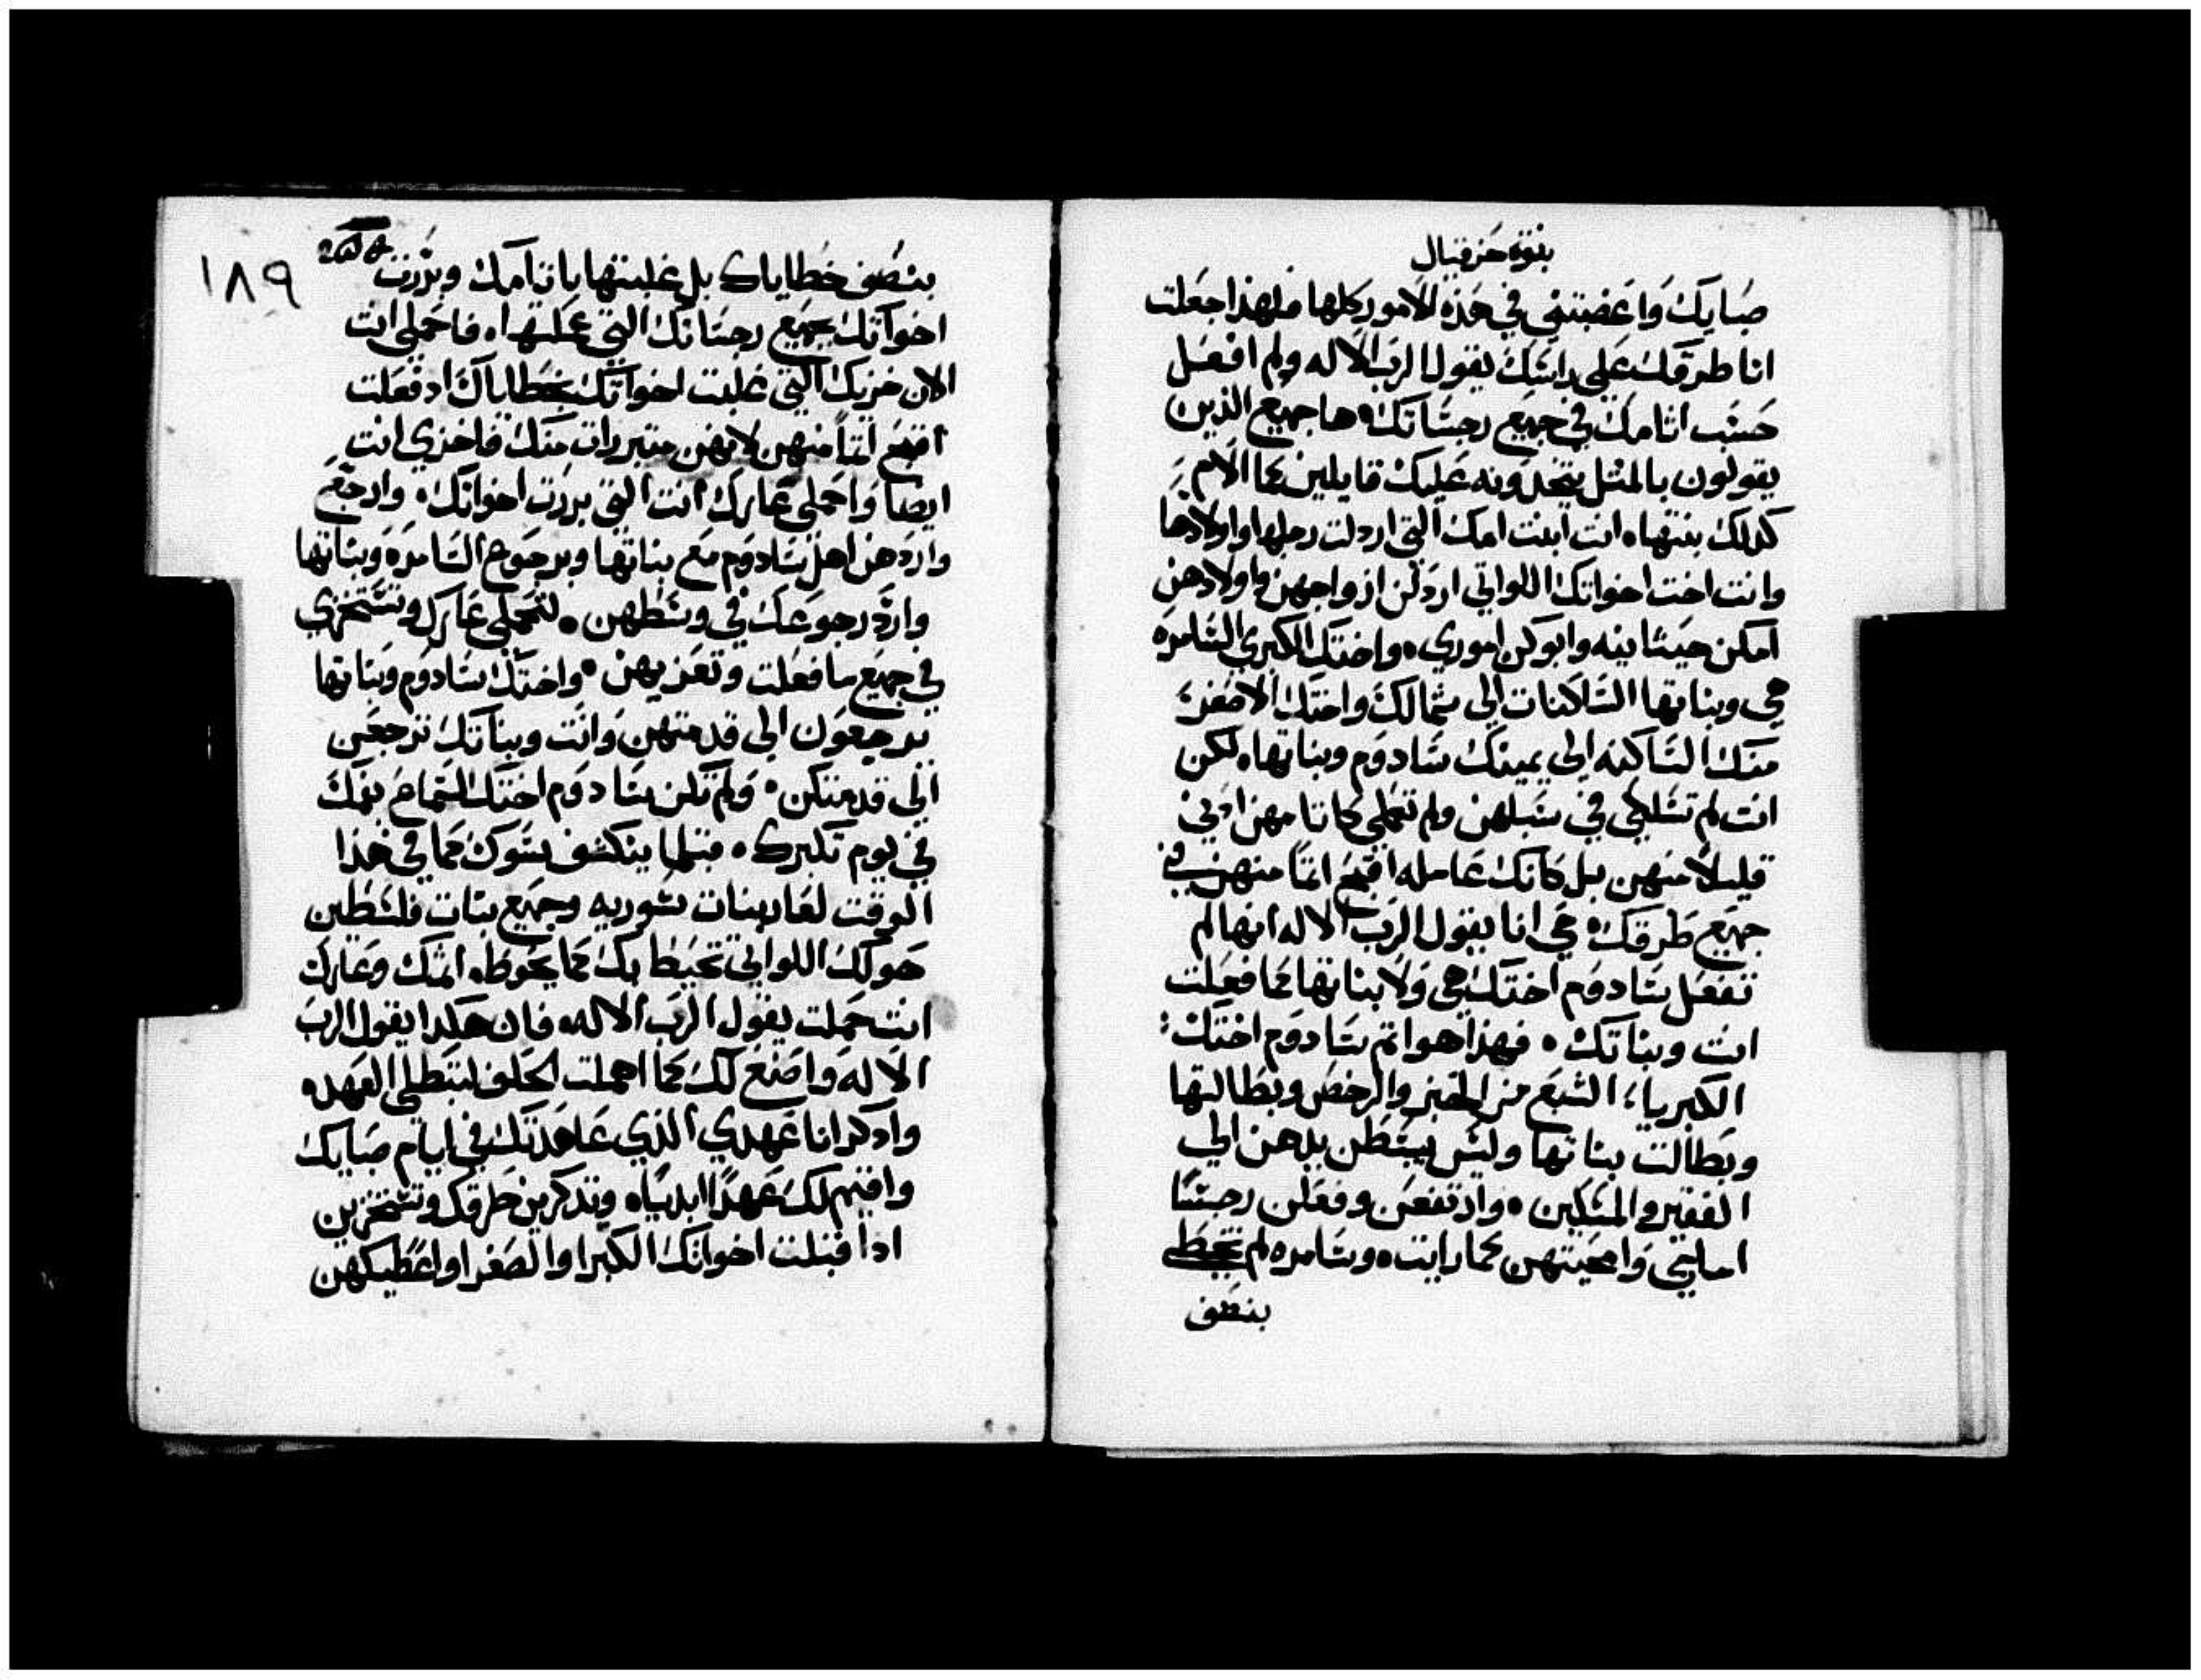 نبوة حزقيال
صبايك واغضبتني في هذه الامور كلها فلهذا جعلت
انا طرقك علي راسك يقول الرب الاله ولم افعل
حسب اثامك في جميع رجساتك ها جميع الذين
يقولون بالمثل يتخدونه عليك قايلين كما الام
كدلك بنتها انت ابنت امك التي اردلت رجلها واولادها
وانت اخت اخواتك اللواتي اردلن ازواجهن واولادهن
امكن حيثانيه وابوكن اموري واختك الكبري السامره
هي وبناتها الساكنات الي شمالك واختك الاصغر
منك الساكنه الي يمينك سادوم وبناتها لكن
انت لم تسلكي في سبلهن ولم تعملي كاثامهن ادني
قليلا منهن بل كانك عامله اقبح اثما منهن في
جميع طرقك حي انا يقول الرب الاله انها لم
تفعل سادوم اختك هي ولا بناتها كما فعلت
انت وبناتك فهذا هو اثم سادوم اختك
الكبريا، الشبع من الخبز والرخص وبطالتها
وبطالت بناتها وليس يبسطن يدهن الي
الفقير والمسكين وارتفعن وفعلن رجسا
امامي وامحيتهن كما رايت وسامره لم تخطي
بنصف
١٨٩
بنصف خطاياك بل غلبتها باثامك وبررت
اخواتك بجميع رجساتك التي عملتها فاحملي انت
الان خزيك التي غلبت اخواتك بخطاياك اد فعلت
اقبح اثما منهن لانهن متبررات منك فاخزي انت
ايضا واحملي عارك انت التي بررت اخواتك وارجع
واردهن اهل سادوم مع بناتها وبرجوع السامره وبناتها
وارد رجوعك في وسطهن لتحملي عارك وتستخزي
في جميع ما فعلت وتعزيهن واختك سادوم وبناتها
يرجعون الي قدمتهن وانت وبناتك ترجعن
الي قدمتكن ولم تكن سادوم اختك لتسمع بفمك
في يوم تكبرك قبلما ينكشف سوك كما في هذا
الوقت لعار بنات سوريه وجميع بنات فلسطين
حولك اللواتي تحيط بك كما يحوط اثمك وعارك
انت حملت يقول الرب الاله فان هكدا يقول الرب
الاله واصنع لك كما اهملت الحلف لتبطلي العهد
وادكر انا عهدي الذي عاهدتك في ايام صبايك
واقيم لك عهدا ابديا وتدكرين طرقك وتستخزين
ادا قبلت اخواتك الكبرا والصغرا واعطيكهن